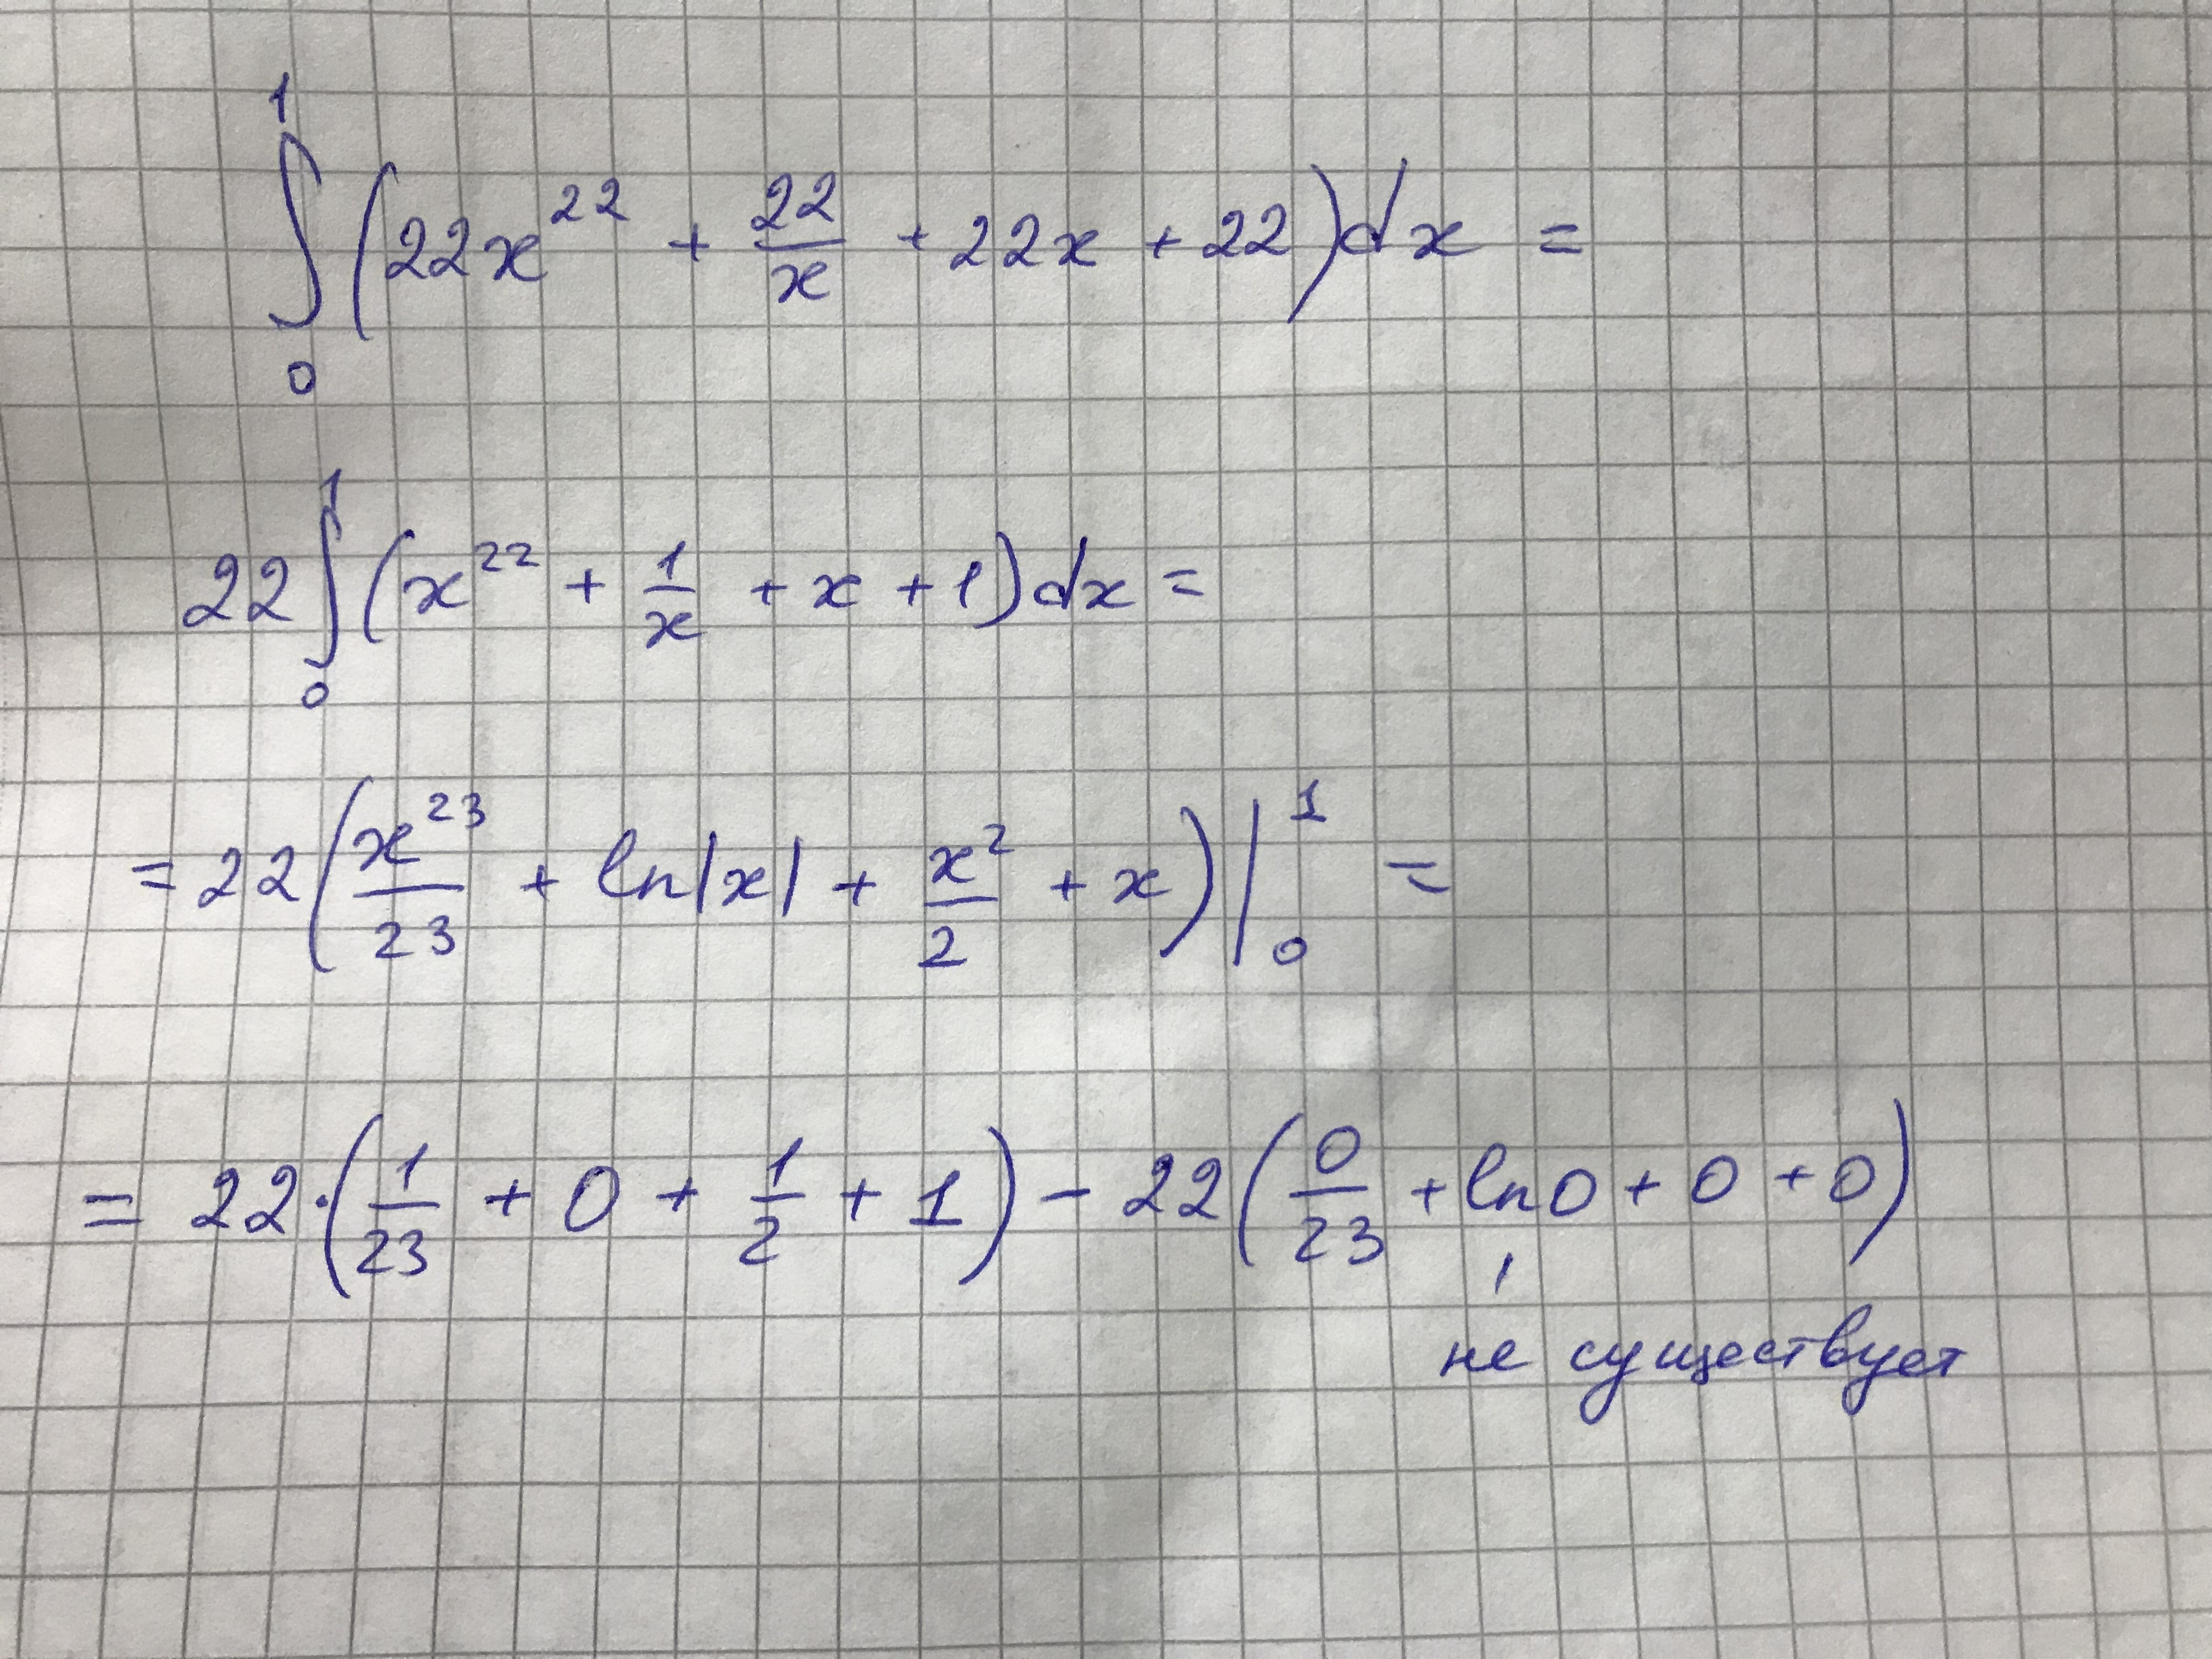 ∫₀¹ (22x²² + 22/x + 22x + 22)dx =
22 ∫₀¹ (x²² + 1/x + x + 1)dx =
= 22(x²³/23 + ln|x| + x²/2 + x)|₀¹ =
= 22·(1/23 + 0 + 1/2 + 1) − 22(0/23 + ln0 + 0 + 0)
не существует